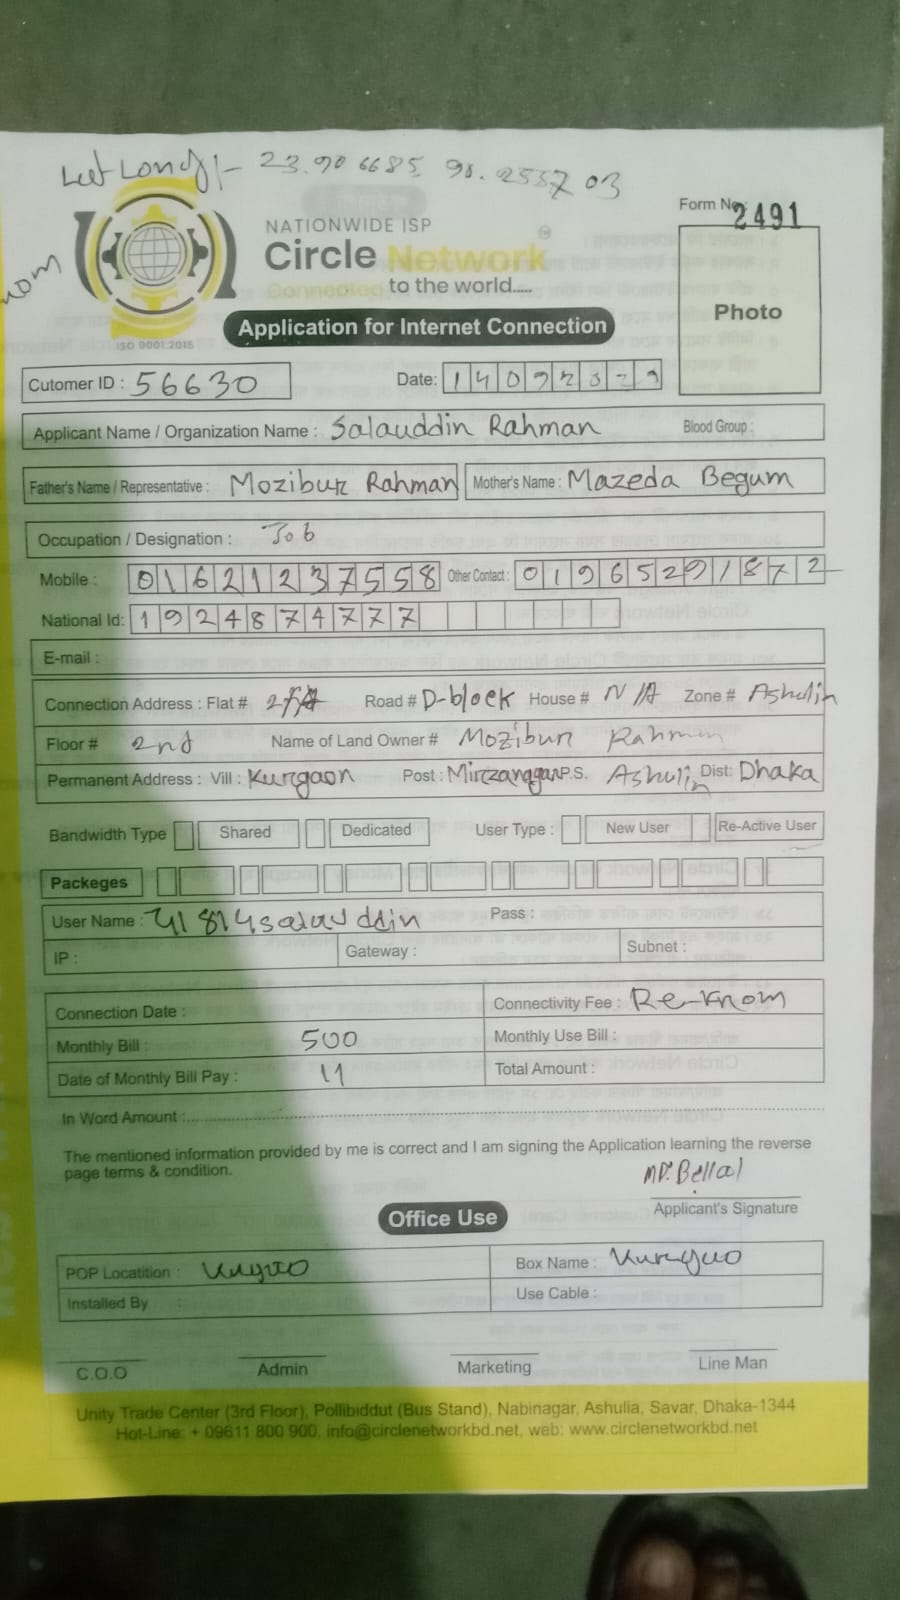 Let Long/- 23.906685 90.255703
Form No: 2491
NATIONWIDE ISP
Circle Network
Connected to the world.....
ISO 9001:2015
Photo
Application for Internet Connection
Cutomer ID : 56630 Date:
Applicant Name / Organization Name : Salauddin Rahman Blood Group :
Father's Name / Representative : Mozibur Rahman Mother's Name : Mazeda Begum
Occupation / Designation : Job
Mobile : 01621237558 Other Contact : 01965291872
National Id: 1924874777
E-mail :
Connection Address : Flat # Road # D-block House # N/A Zone # Ashulia
Floor # 2nd Name of Land Owner # Mozibur Rahman
Permanent Address : Vill : Kurgaon Post : Mirzanagar P.S. Ashulia Dist: Dhaka
Bandwidth Type Shared Dedicated User Type : New User Re-Active User
Packeges
User Name : 41814salauddin Pass :
IP : Gateway : Subnet :
Connection Date : Connectivity Fee : Re-Knom
Monthly Bill : 500 Monthly Use Bill :
Date of Monthly Bill Pay : 11 Total Amount :
In Word Amount :
The mentioned information provided by me is correct and I am signing the Application learning the reverse
page terms & condition.
MD. Bellal
Applicant's Signature
Office Use
POP Locatition : Box Name :
Installed By : Use Cable :
C.O.O Admin Marketing Line Man
Unity Trade Center (3rd Floor), Pollibiddut (Bus Stand), Nabinagar, Ashulia, Savar, Dhaka-1344
Hot-Line: + 09611 800 900, info@circlenetworkbd.net, web: www.circlenetworkbd.net